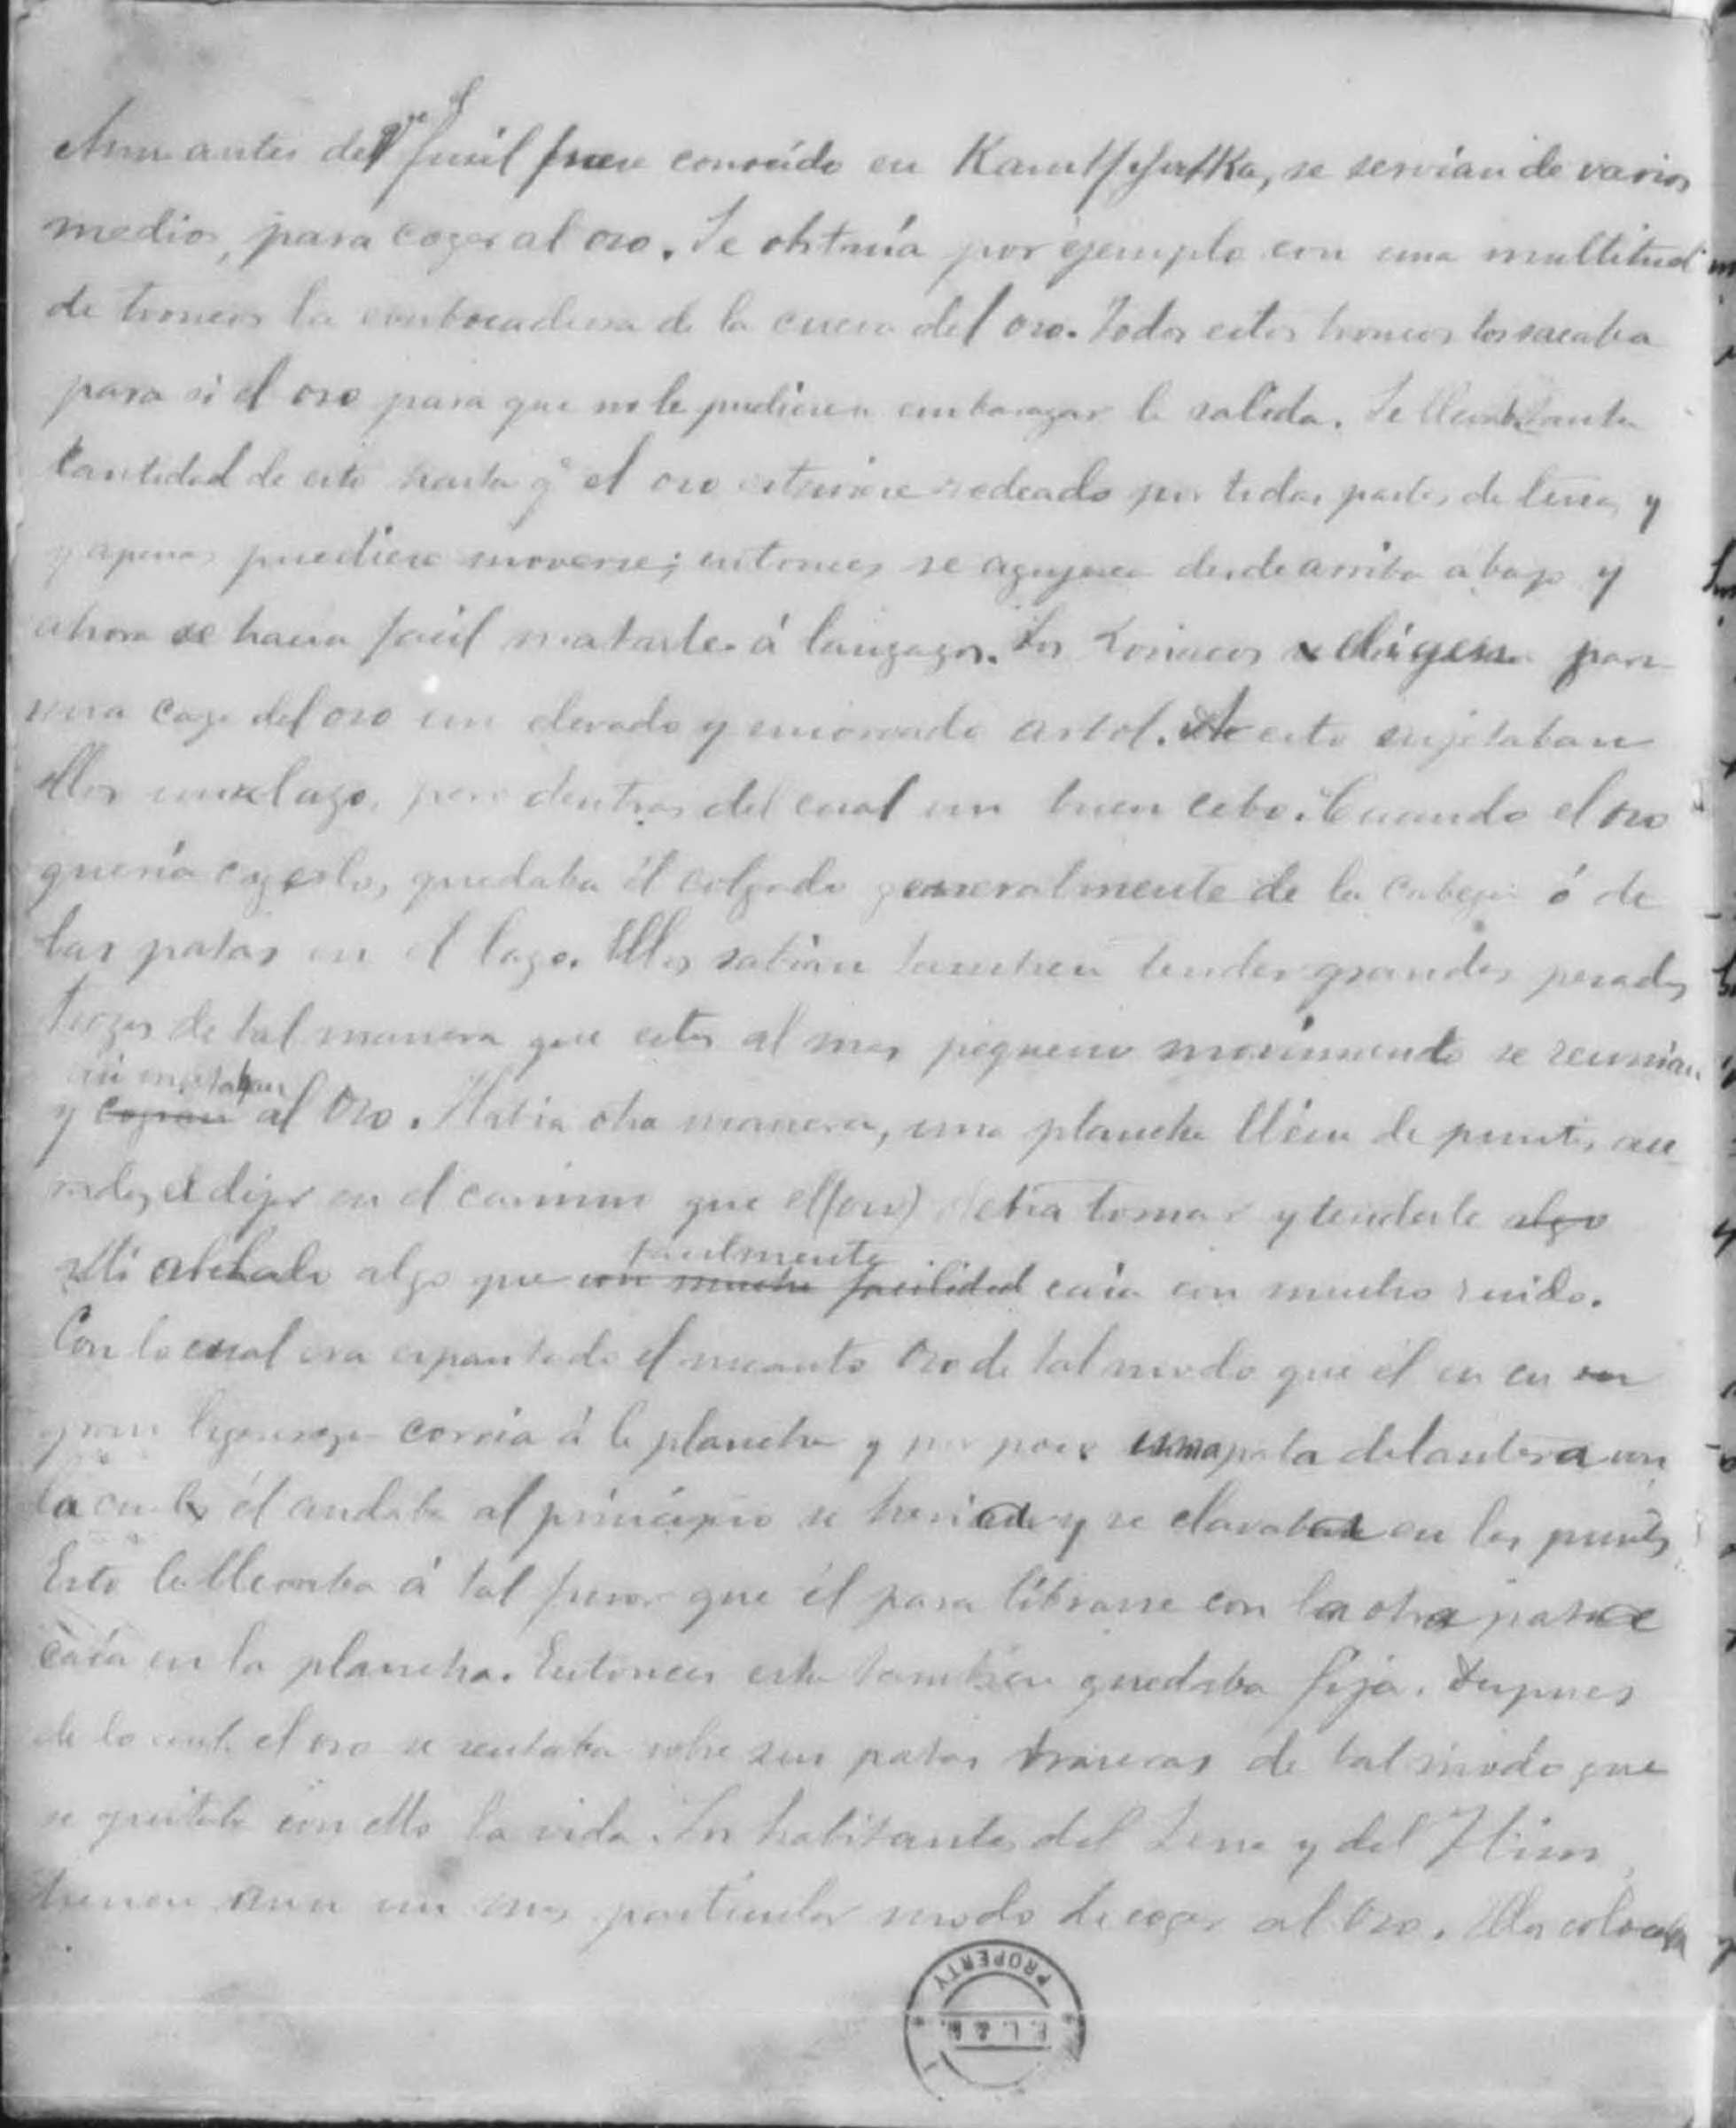 Aun antes de qe el fusil fuese conocido en Kamtschatka, se servian de varios
medios, para coger al oso. Se obtruía por ejemplo con una multitud
de troncos la embocadura de la cueva del oso. Todos estos troncos los sacaba
para si el oso para que no le pudiesen embarazar la salida. Se llevaba tanta
cantidad de esto hasta q.e el oso estuviese rodeado por todas partes de leña, y
y apenas pudiese moverse; entonces se agujerea desde arriba abajo y
ahora se hacia facil matarle á lanzazos. Los Koriacos eligen para
una caza del oso un elevado y encorvado arbol. A esto sujetaban
ellos un lazo, pero dentro del cual un buen cebo. Cuando el oso
quería cogerlo, quedaba él colgado generalmente de la cabeza ó de
las patas en el lazo. Ellos sabian tambien tender grandes pesados
trozos de tal manera que estos al mas pequeño movimiento se reunian
asi mataban
y cogian al oso. Habia otra manera, una plancha llena de puntas ace
radas, dejar en el camino que el (oso) debia tomar y tenderle algo
alli al lado algo que con mucha facilidad caia con mucho ruido.
facilmente
Con lo cual era espantado el incauto oso de tal modo que él en su
gran ligereza corria á la plancha y por poco una pata delantera con
la cual él andaba al principio se heria y se clavaba en las puntas
Esto le llevaba á tal furor que él para librarse con la otra pata
caía en la plancha. Entonces esta tambien quedaba fija. Despues
de lo cual el oso se sentaba sobre sus patas traseras de tal modo que
se quitaba con ello la vida. Los habitantes del Lena y del Ilim
tienen aun un mas particular modo de coger al oso. Ellos colocaban
PROPERTY